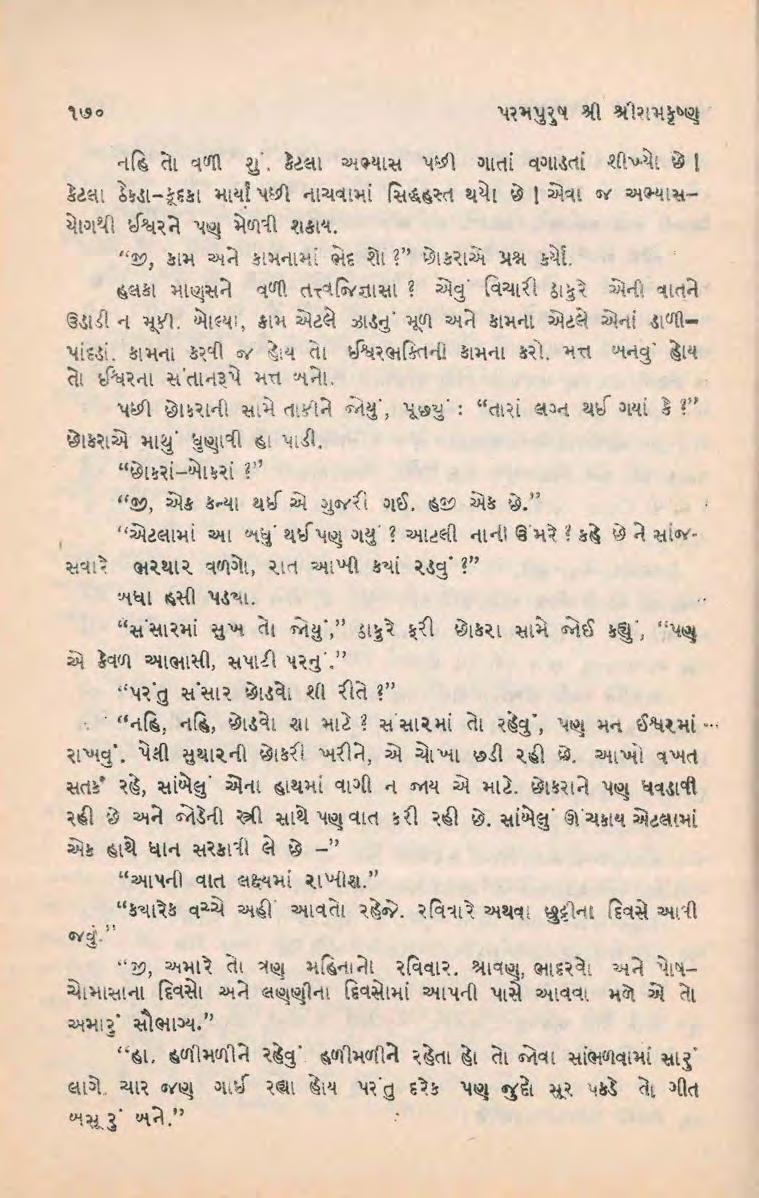 ૧૭૦ પરમપુરુષ શ્રી શ્રીરામકૃષ્ણ
નહિ તો વળી શું. કેટલા અભ્યાસ પછી ગાતાં વગાડતાં શીખ્યો છે !
કેટલા ઠેકડા-કૂદકા માર્યા પછી નાચવામાં સિદ્ધહસ્ત થયો છે ! એવા જ અભ્યાસ-
યોગથી ઈશ્વરને પણ મેળવી શકાય.
“જી, કામ અને કામનામાં ભેદ શો ?” છોકરાએ પ્રશ્ન કર્યો.
હલકા માણસને વળી તત્ત્વજિજ્ઞાસા ? એવું વિચારી ઠાકુરે એની વાતને
ઉડાડી ન મૂકી. બોલ્યા, કામ એટલે ઝાડનું મૂળ અને કામના એટલે એનાં ડાળી-
પાંદડાં. કામના કરવી જ હોય તો ઈશ્વરભક્તિની કામના કરો. મત્ત બનવું હોય
તો ઈશ્વરના સંતાનરૂપે મત્ત બનો.
પછી છોકરાની સામે તાકીને જોયું, પૂછયું : “તારાં લગ્ન થઈ ગયાં કે ?”
છોકરાએ માથું ધુણાવી હા પાડી.
“છોકરાં-બોકરાં ?”
“જી, એક કન્યા થઈ એ ગુજરી ગઈ. હજી એક છે.”
“એટલામાં આ બધું થઈ પણ ગયું ? આટલી નાની ઉંમરે ? કહે છે ને સાંજ-
સવારે ભરથાર વળગો, રાત આખી કયાં રડવું ?”
બધા હસી પડયા.
“સંસારમાં સુખ તો જોયું,” ઠાકુરે ફરી છોકરા સામે જોઈ કહ્યું, “પણ
એ કેવળ આભાસી, સપાટી પરનું.”
“પરંતુ સંસાર છોડવો શી રીતે ?”
“નહિ, નહિ, છોડવો શા માટે ? સંસારમાં તો રહેવું, પણ મન ઈશ્વરમાં
રાખવું. પેલી સુથારની છોકરી ખરીને, એ ચોખા છડી રહી છે. આખો વખત
સતર્ક રહે, સાંબેલું એના હાથમાં વાગી ન જાય એ માટે. છોકરાને પણ ધવડાવી
રહી છે અને જોડેની સ્ત્રી સાથે પણ વાત કરી રહી છે. સાંબેલું ઊંચકાય એટલામાં
એક હાથે ધાન સરકાવી લે છે –”
“આપની વાત લક્ષ્યમાં રાખીશ.”
“કયારેક વચ્ચે અહીં આવતો રહેજે. રવિવારે અથવા છુટ્ટીના દિવસે આવી
જવું.”
“જી, અમારે તો ત્રણ મહિનાનો રવિવાર. શ્રાવણ, ભાદરવો અને પોષ-
ચોમાસાના દિવસો અને લણણીના દિવસોમાં આપની પાસે આવવા મળે એ તો
અમારું સૌભાગ્ય.”
“હા. હળીમળીને રહેવું. હળીમળીને રહેતા હો તો જોવા સાંભળવામાં સારું
લાગે. ચાર જણ ગાઈ રહ્યા હોય પરંતુ દરેક પણ જુદો સૂર પકડે તો ગીત
બસૂરું બને.”